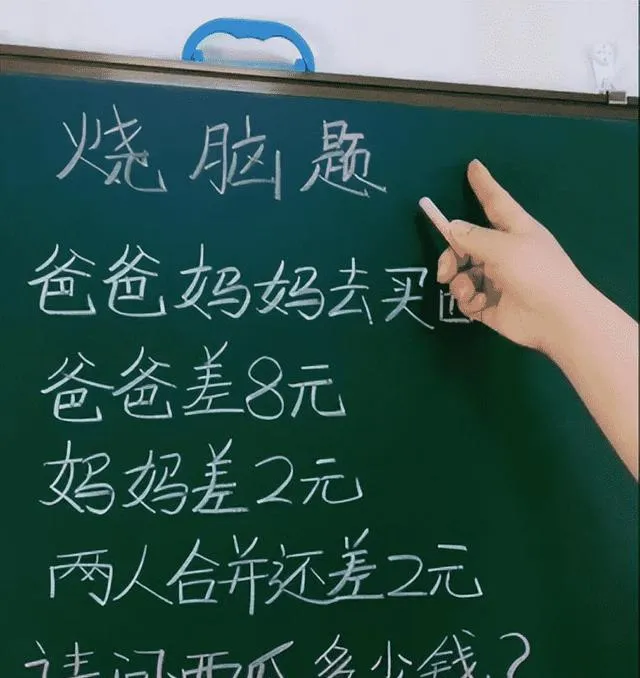 烧脑题
爸爸妈妈去买西
爸爸差8元
妈妈差2元
两人合并还差2元
请问西瓜多少钱?